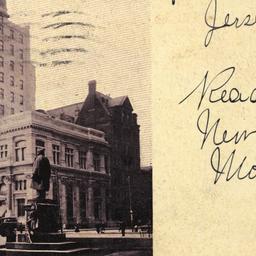 Jers
Read
New
Mo